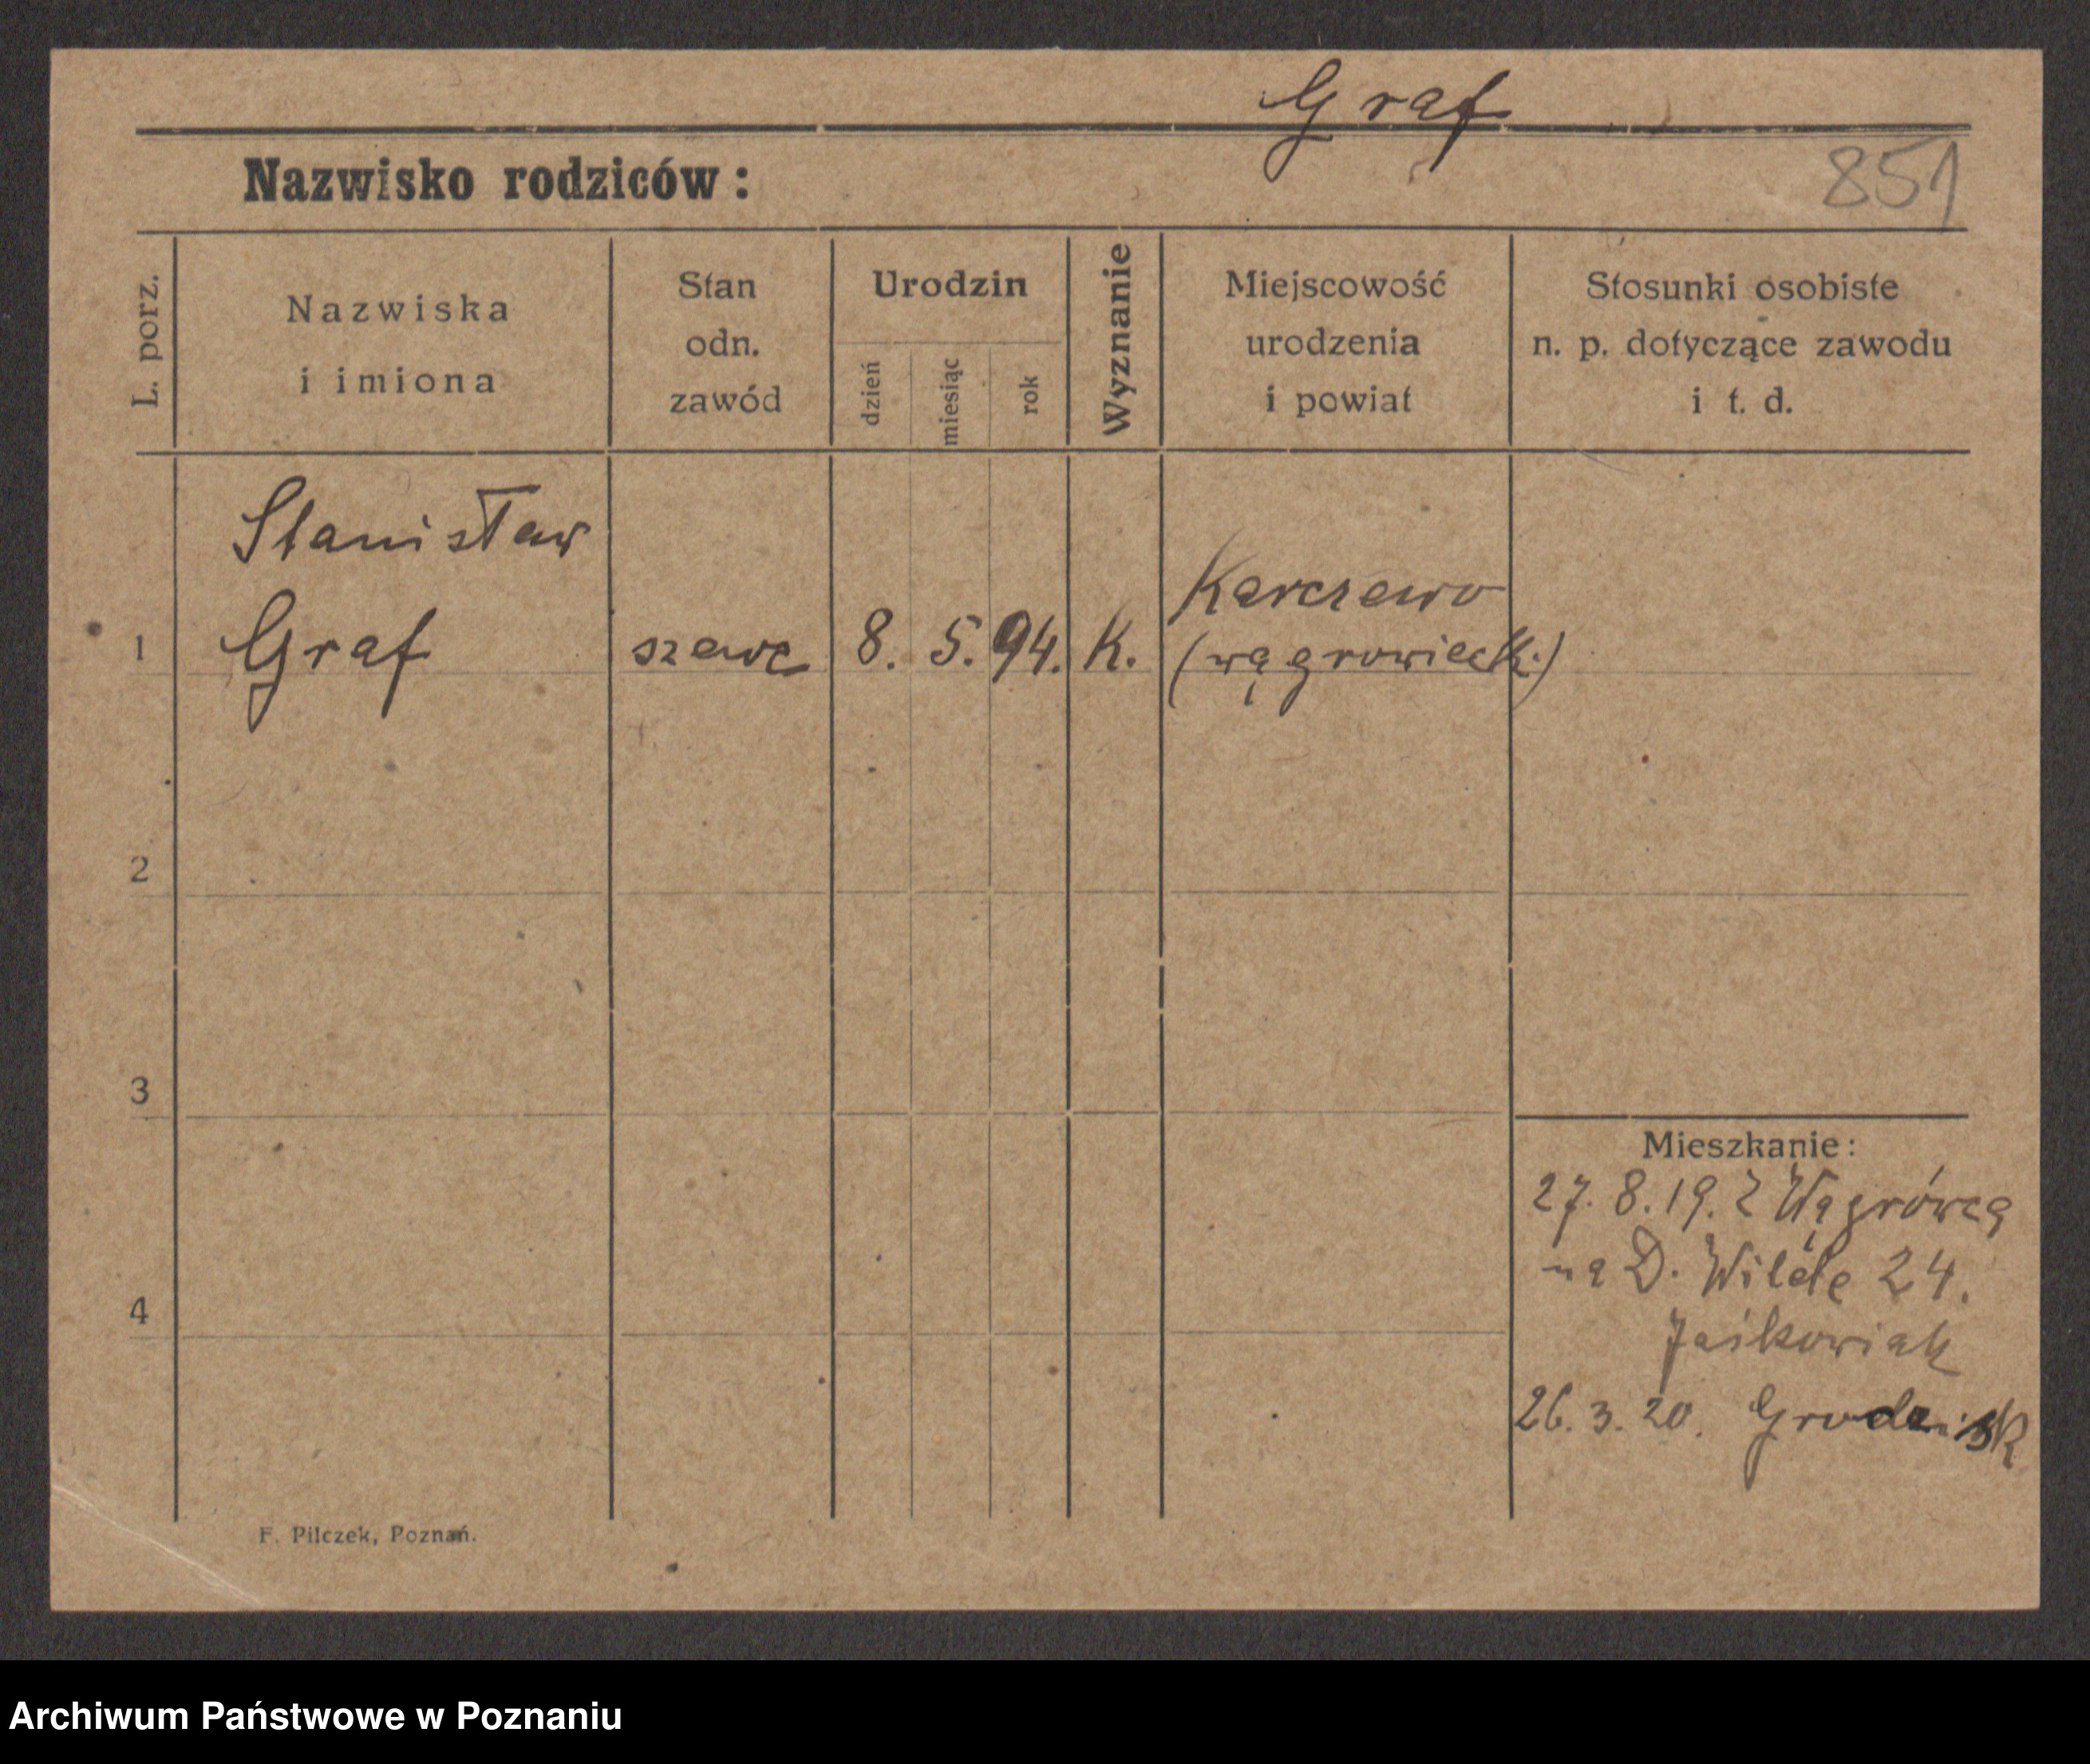 Graf
Nazwisko rodziców:
851
L. porz.
Nazwiska
i imiona
Stan
odn.
zawód
Urodzin
dzień
miesiąc
rok
Wyznanie
Miejscowość
urodzenia
i powiat
Stosunki osobiste
n. p. dotyczące zawodu
i t. d.
Stanisław
1 Graf szewc 8. 5. 94. K. Karczewo
(wągrowieck.)
2
3
4
Mieszkanie:
27.8.19. Z Wągrówca
na D. Wilde 24.
Jaśkowiak
26.3.20. Grodzisk
F. Pilczek, Poznań.
Archiwum Państwowe w Poznaniu